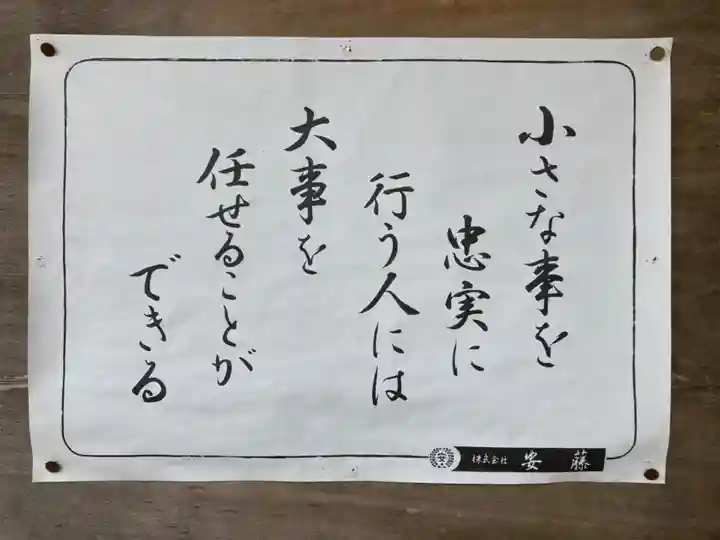 小さな事を
忠実に
行う人には
大事を
任せることが
できる
株式会社 安藤